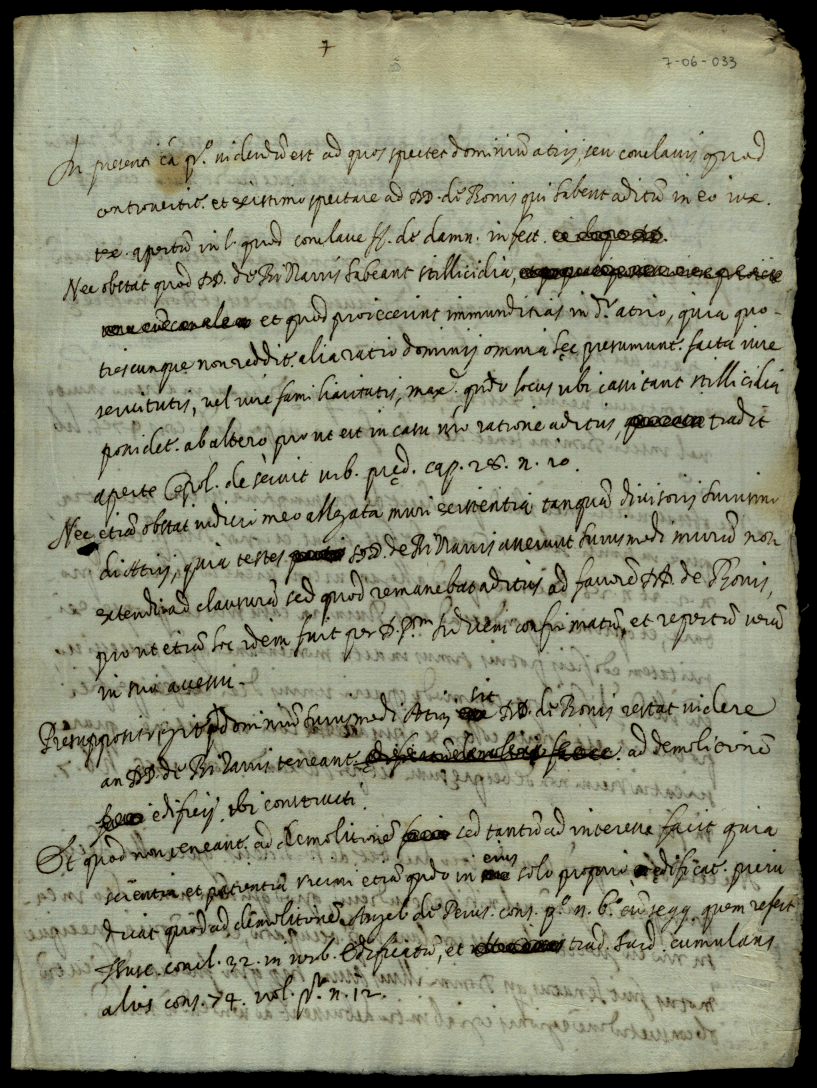 7
7-06-033
In presenti cã pº. videndũ est ad quos spectet dominiũ atrij, seu conclavis quod
controvertit. et existimo spectare ad DD. de Ronis qui habent aditũ in eo iux.
tex. apertũ in l. quod conclave ff. de damn. infect.
Nec obstat quod DD. de Ri Narris habeant stillicidia,
et quod proiecerint immunditias in dº. atrio, quia quo-
tiescunque non reddit. alia ratio dominij omnia hęc presumunt. facta iure
servitutis, vel iure familiaritatis, maxe. qñdo locus ubi cassitant stillicidia
possidet. ab altero prout est in casu nrõ ratione aditus, tradit
aperte Cępol. de servit. urb. pręd. cap. 28. n. 10.
Nec etiã obstat iudicio meo allegata muri existentia tanquã divisorij huiusmodi
Atrij, quia testes DD. de Ri Narris asserunt huiusmodi murũ non
extendi ad clausurã sed quod remanebat aditus ad favorẽ DD. de Ronis,
prout etiã hoc idem fuit per D. confirmatũ, et repertũ verũ
in suo accessu.
Presupposito igit. dominiũ huiusmodi Atrij sit DD. de Ronis restat videre
an DD. de Ri Narris teneant. ad demolitionẽ
edificij ibi constructi.
Et quod non teneant. ad demolitionẽ sed tantũ ad interesse facit quia
scientia et patientia vicini etiã qñdo in eius solo proprio edificat. preiu
dicat quoad demolitionẽ Angel. de Perus. cons. pº. n. 6º. cũ seqq. quem refert
consil. 32. in verb. Edificatũ, et trad. Surd. cumulans
alios cons. 74. vol. pº. n. 12.